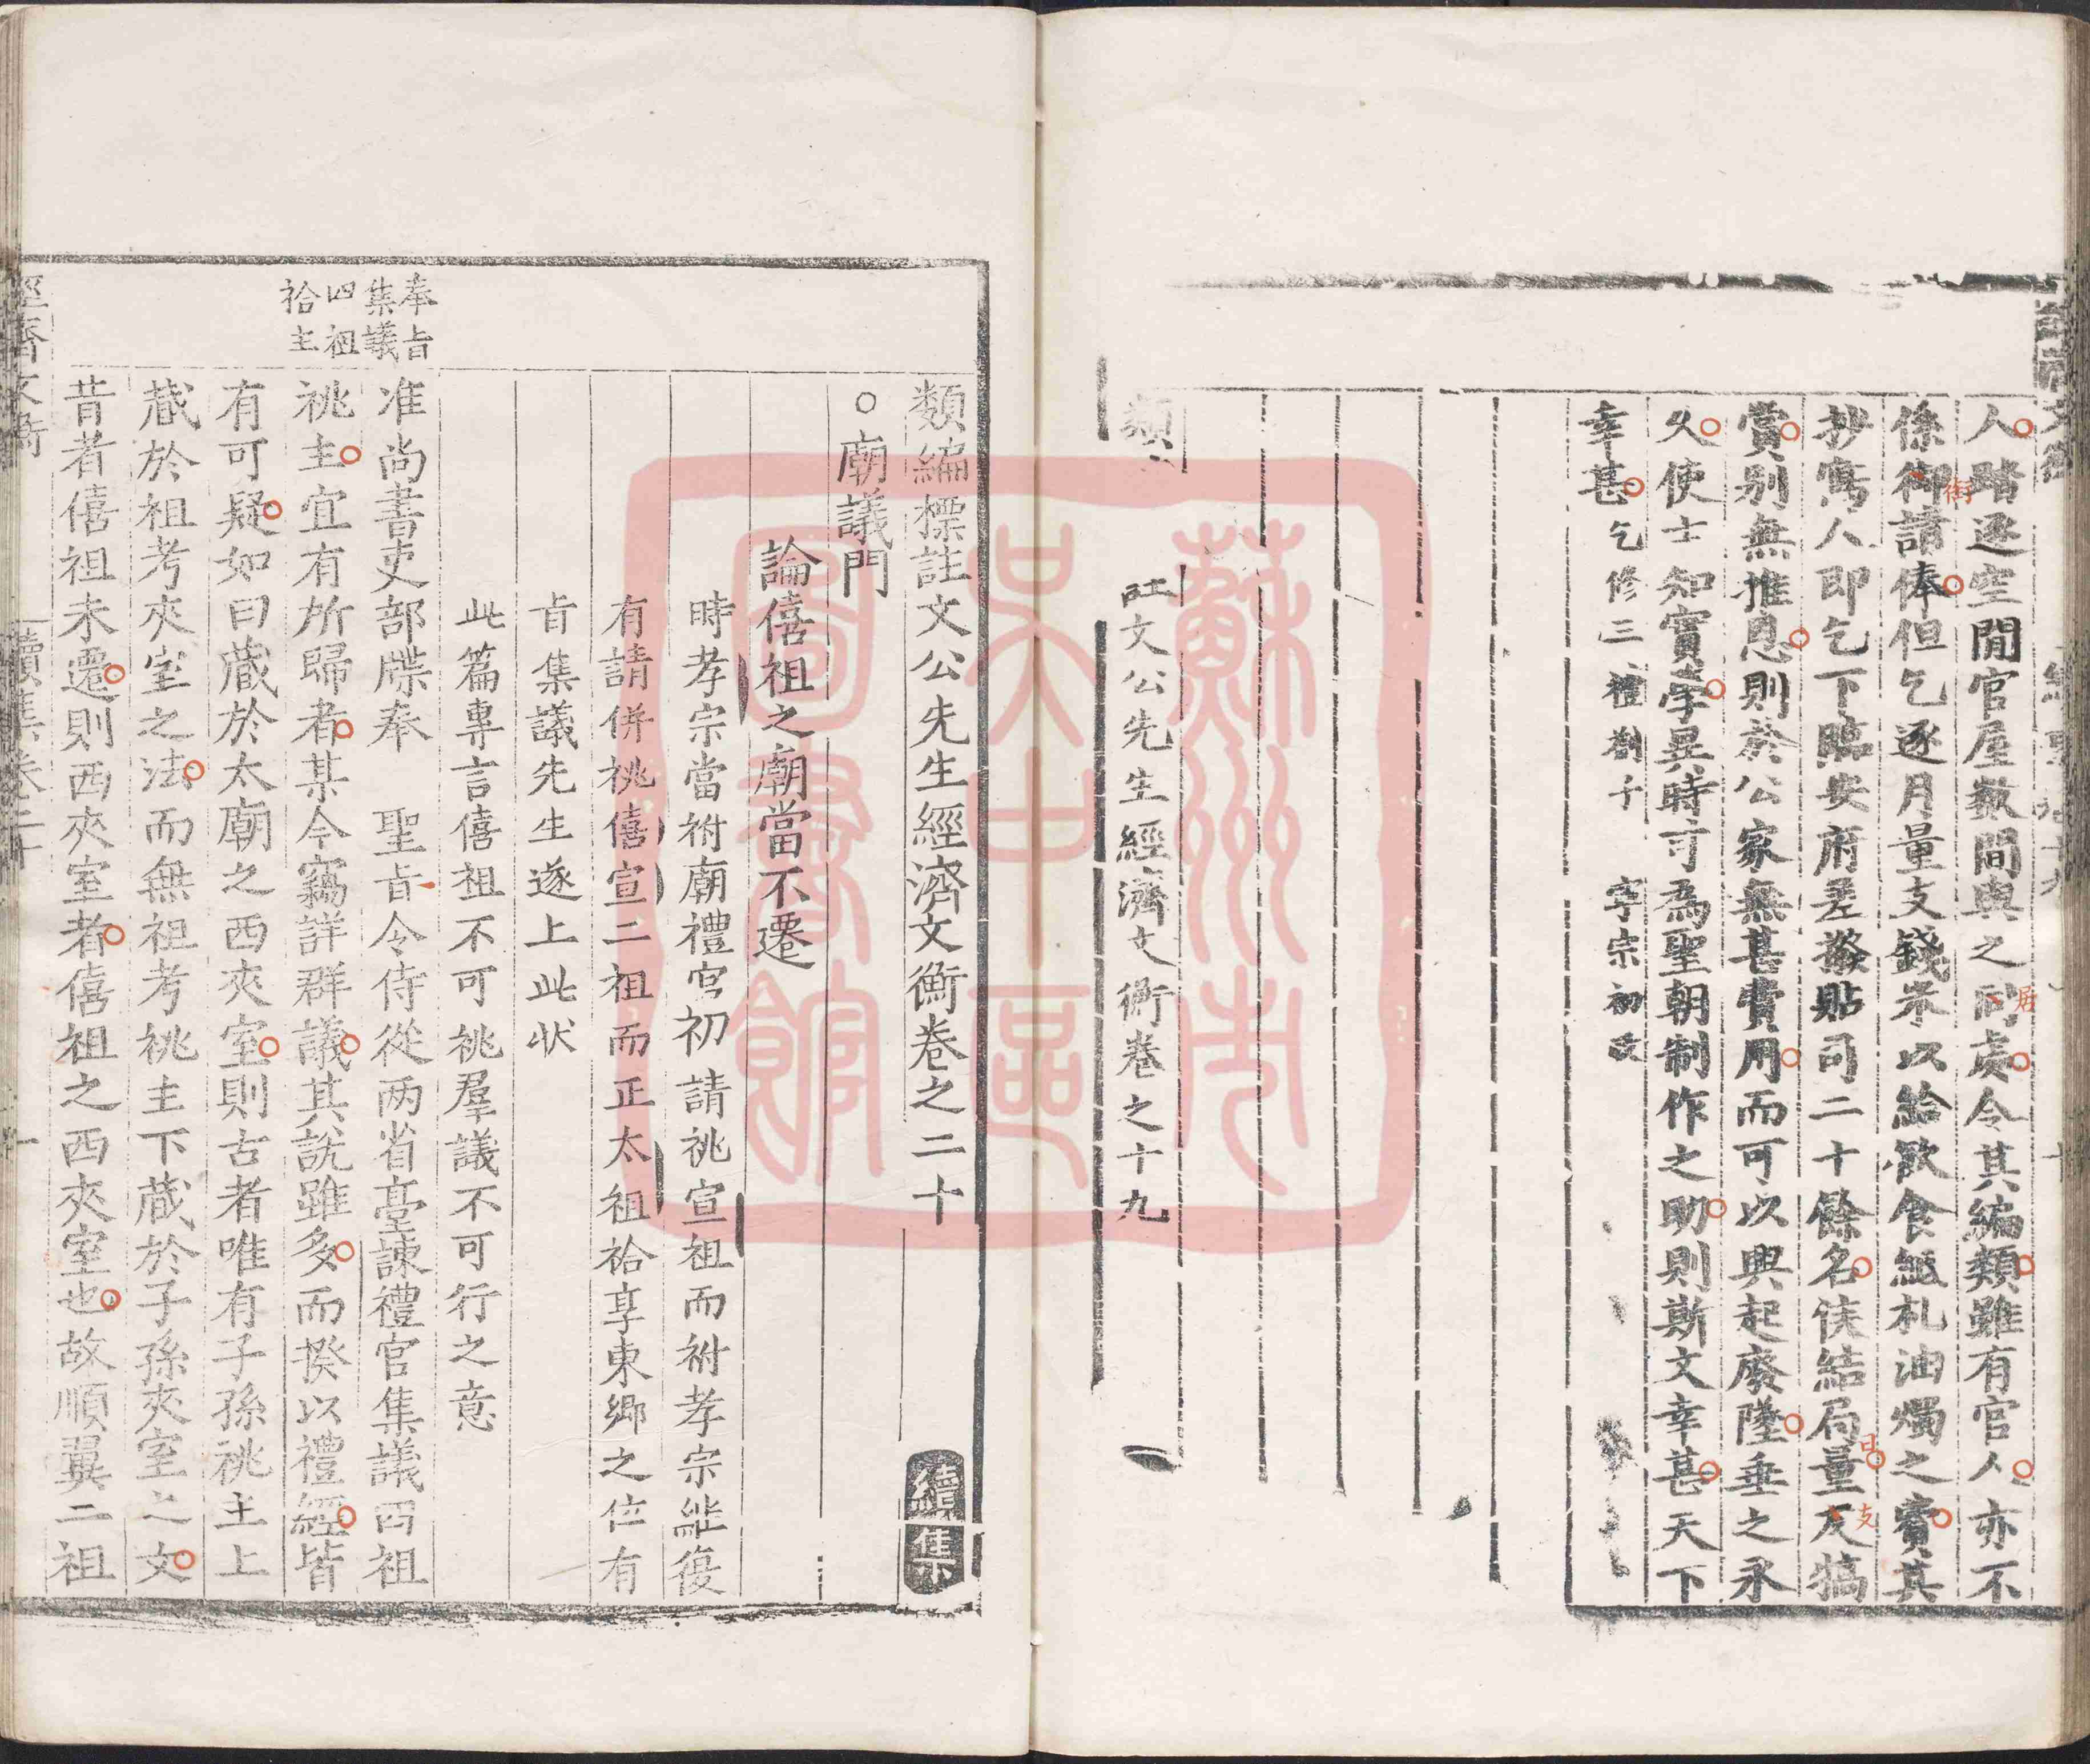 人踏逐空閒官屋數間與之同處令其編類雖有官人亦不
係御請俸但乞逐月量支錢米以給飲食紙札油燭之費其
抄寫人即乞下臨安府差撥貼司二十餘名候結局量支犒
賞别無推恩則於公家無甚費用而可以興起廢墜垂之永
久使士知實學異時可為聖朝制作之助則斯文幸甚天下
幸甚乞修三禮劄子 寧宗初政
類
註文公先生經濟文衡卷之十九
類編標註文公先生經濟文衡卷之二十 續集
○廟議門
論僖祖之廟當不遷
時孝宗當祔廟禮官初請祧宣祖而祔孝宗繼復
有請併祧僖宣二祖而正太祖祫享東鄉之位有
旨集議先生遂上此狀
此篇專言僖祖不可祧羣議不可行之意
奉旨
集議
四祖
祫主
准尚書吏部牒奉 聖旨令侍從两省臺諫禮官集議四祖
祧主宜有所歸者某今竊詳群議其説雖多而揆以禮經皆
有可疑如曰藏於太廟之西夾室則古者唯有子孫祧主上
藏於祖考夾室之法而無祖考祧主下藏於子孫夾室之文
昔者僖祖未遷則西夾室者僖祖之西夾室也故順翼二祖
經濟文衡 續集卷二十 一
蘇州市
吴中區
圖書館